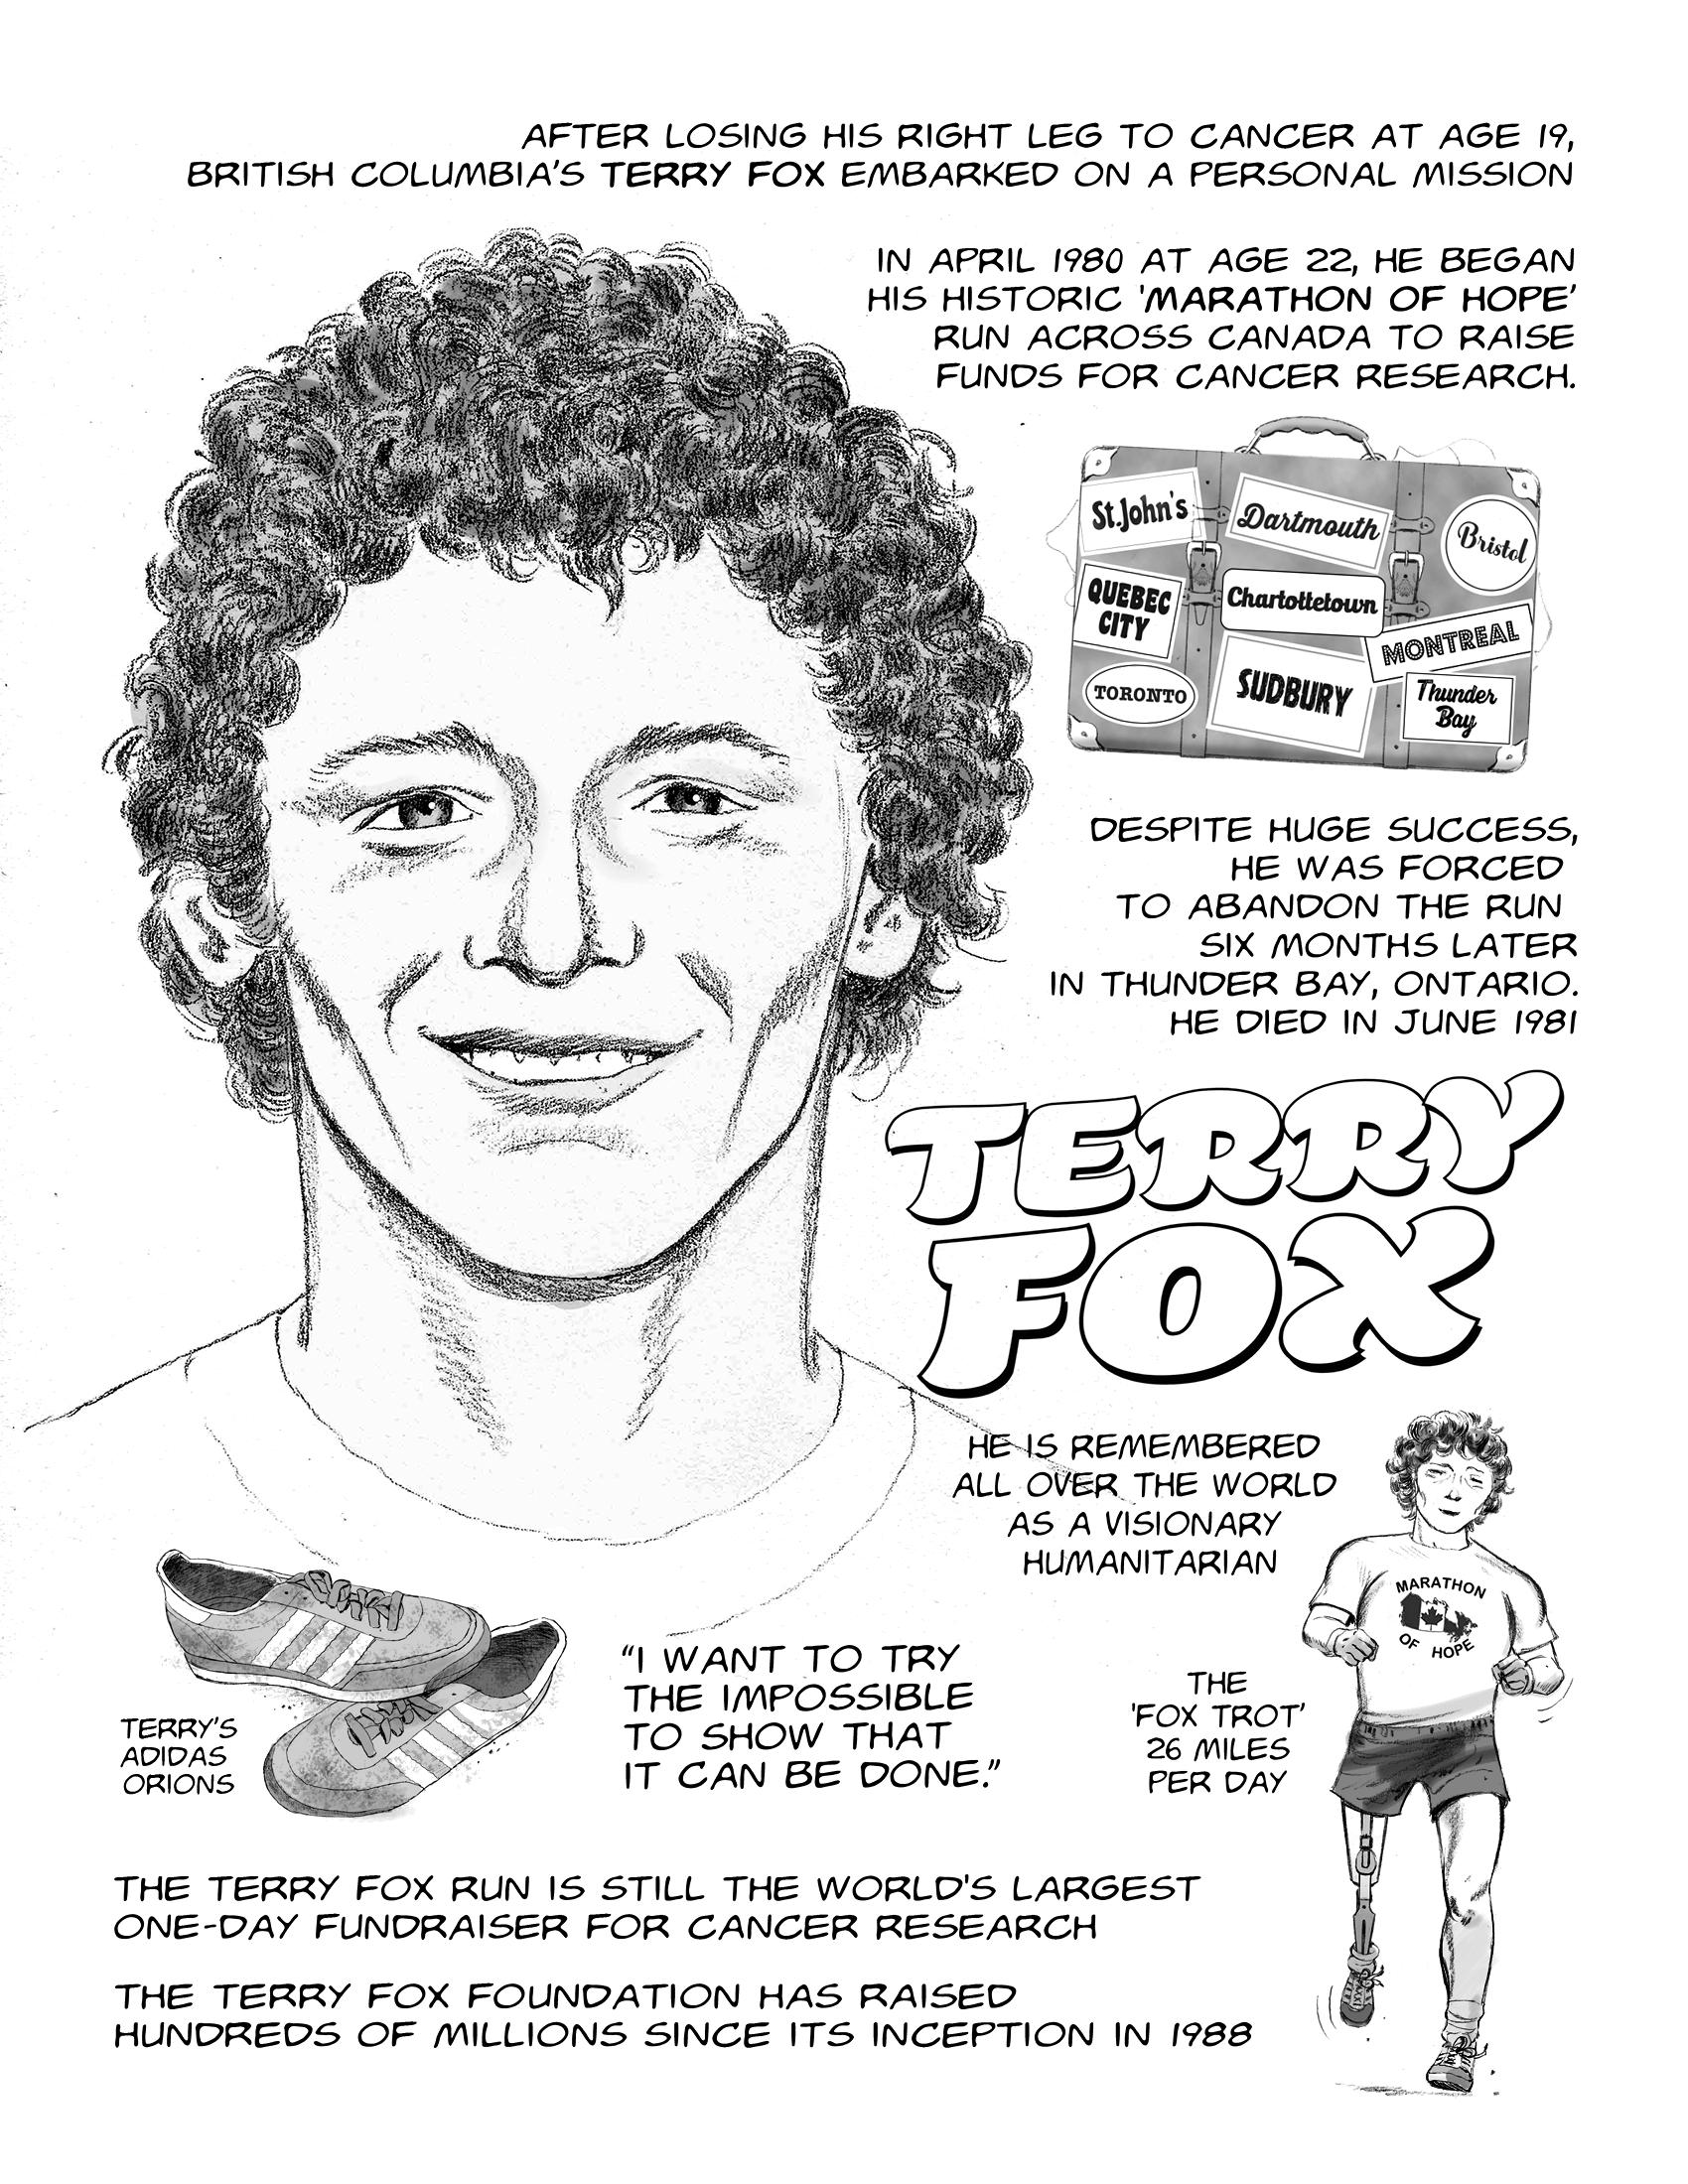 AFTER LOSING HIS RIGHT LEG TO CANCER AT AGE 19,
BRITISH COLUMBIA'S TERRY FOX EMBARKED ON A PERSONAL MISSION
IN APRIL 1980 AT AGE 22, HE BEGAN
HIS HISTORIC 'MARATHON OF HOPE'
RUN ACROSS CANADA TO RAISE
FUNDS FOR CANCER RESEARCH.
St.John's
Dartmouth
Bristol
QUEBEC
CITY
Chartottetown
MONTREAL
TORONTO
SUDBURY
Thunder
Bay
DESPITE HUGE SUCCESS,
HE WAS FORCED
TO ABANDON THE RUN
SIX MONTHS LATER
IN THUNDER BAY, ONTARIO.
HE DIED IN JUNE 1981
TERRY
FOX
HE IS REMEMBERED
ALL OVER THE WORLD
AS A VISIONARY
HUMANITARIAN
MARATHON
OF HOPE
THE
'FOX TROT'
26 MILES
PER DAY
"I WANT TO TRY
THE IMPOSSIBLE
TO SHOW THAT
IT CAN BE DONE."
TERRY'S
ADIDAS
ORIONS
THE TERRY FOX RUN IS STILL THE WORLD'S LARGEST
ONE-DAY FUNDRAISER FOR CANCER RESEARCH
THE TERRY FOX FOUNDATION HAS RAISED
HUNDREDS OF MILLIONS SINCE ITS INCEPTION IN 1988